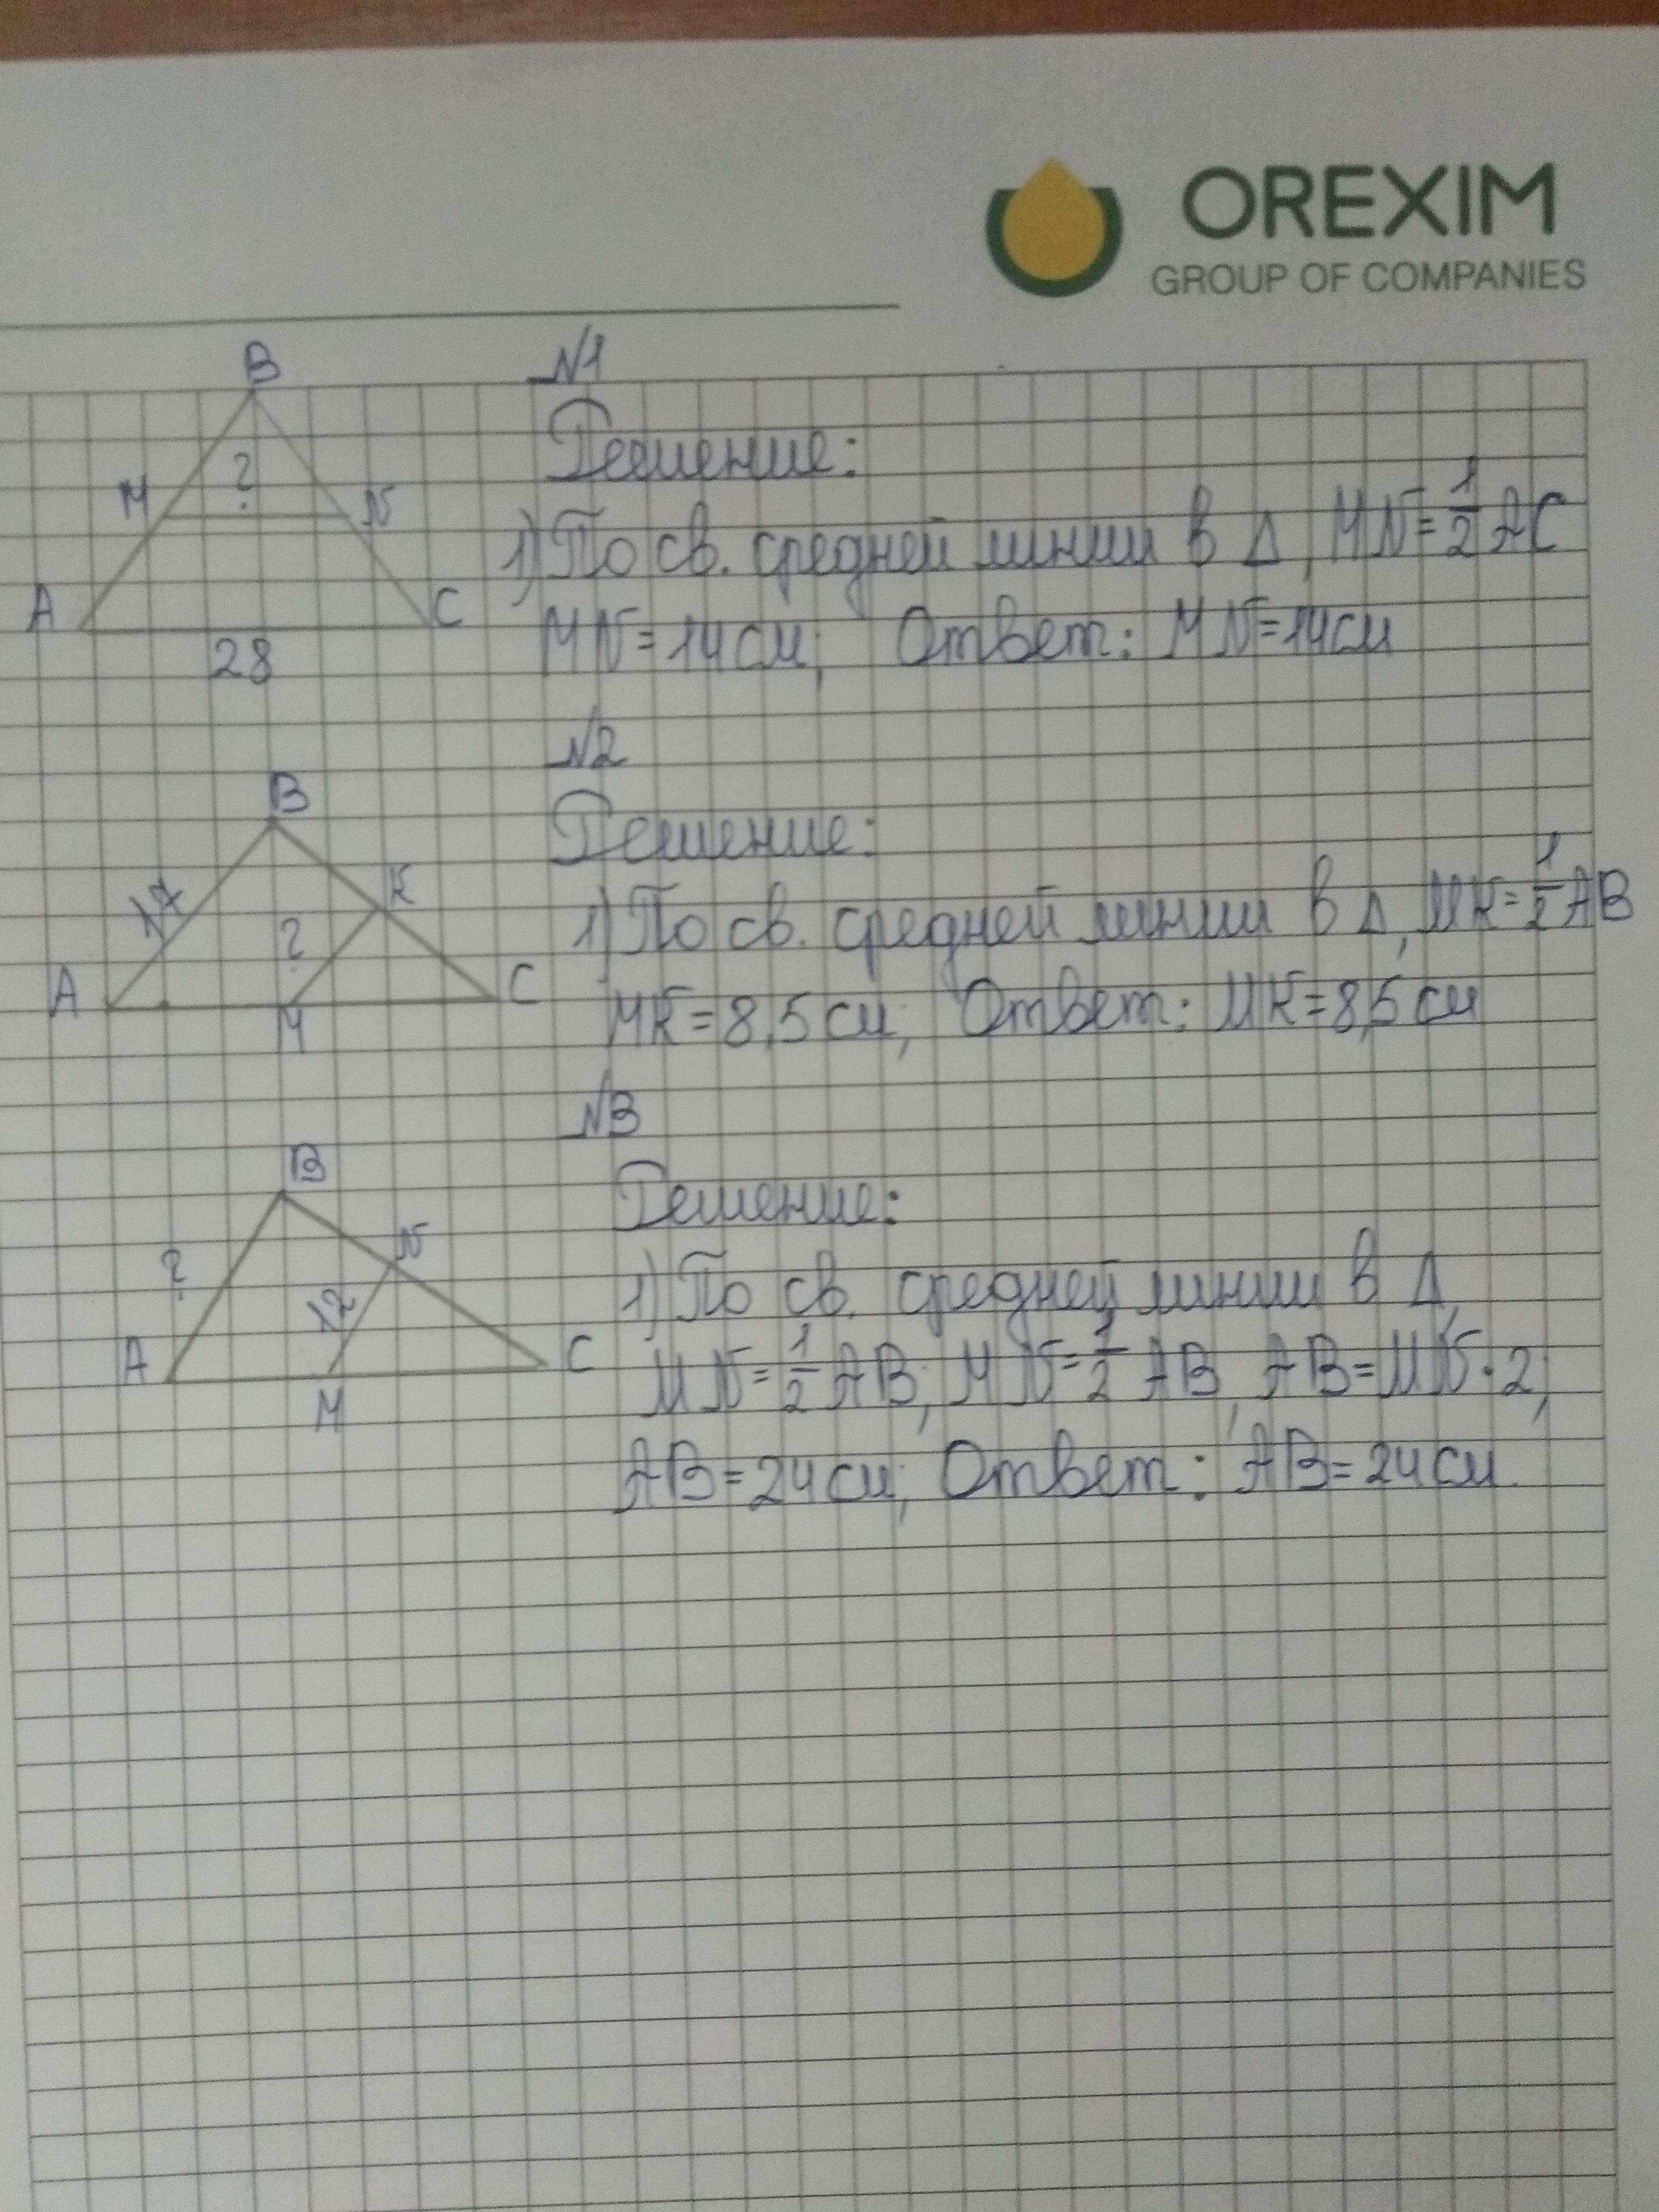 OREXIM
GROUP OF COMPANIES
N1
B
M
?
N
A
C
28
Решение:
1) По св. средней линии в Δ, MN=1/2 AC
MN=14см; Ответ: MN=14см
N2
B
17
K
?
A
M
C
Решение:
1) По св. средней линии в Δ, MK=1/2 AB
MK=8,5см; Ответ: MK=8,5см
N3
B
?
N
12
A
M
C
Решение:
1) По св. средней линии в Δ,
MN=1/2 AB; MN=1/2 AB, AB=MN·2;
AB=24см; Ответ: AB=24см.